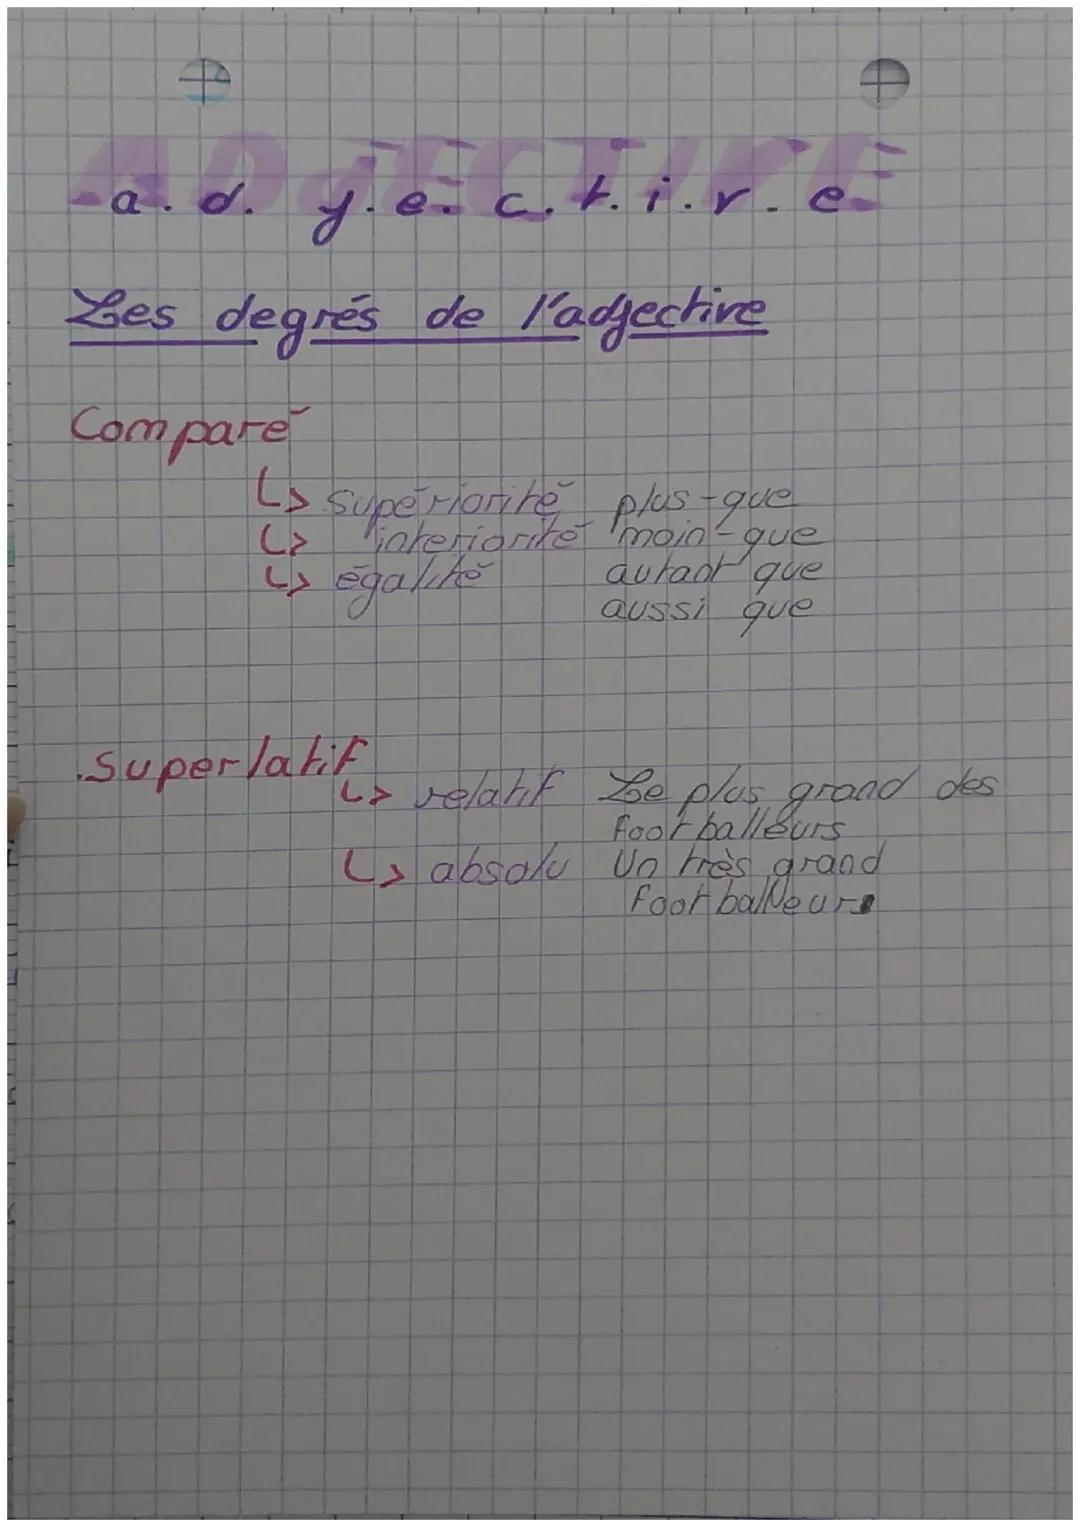 ADJECTIVE
a.d.j.e.c.t.i.v.e.
Les degrés de l'adjective
Comparé
↳ supériorité plus-que
↳ interiorité moin-que
↳ égalité autant que
aussi que
.Superlatif
↳ relatif Le plus grand des
footballeurs
↳ absolu Un très grand
footballeur